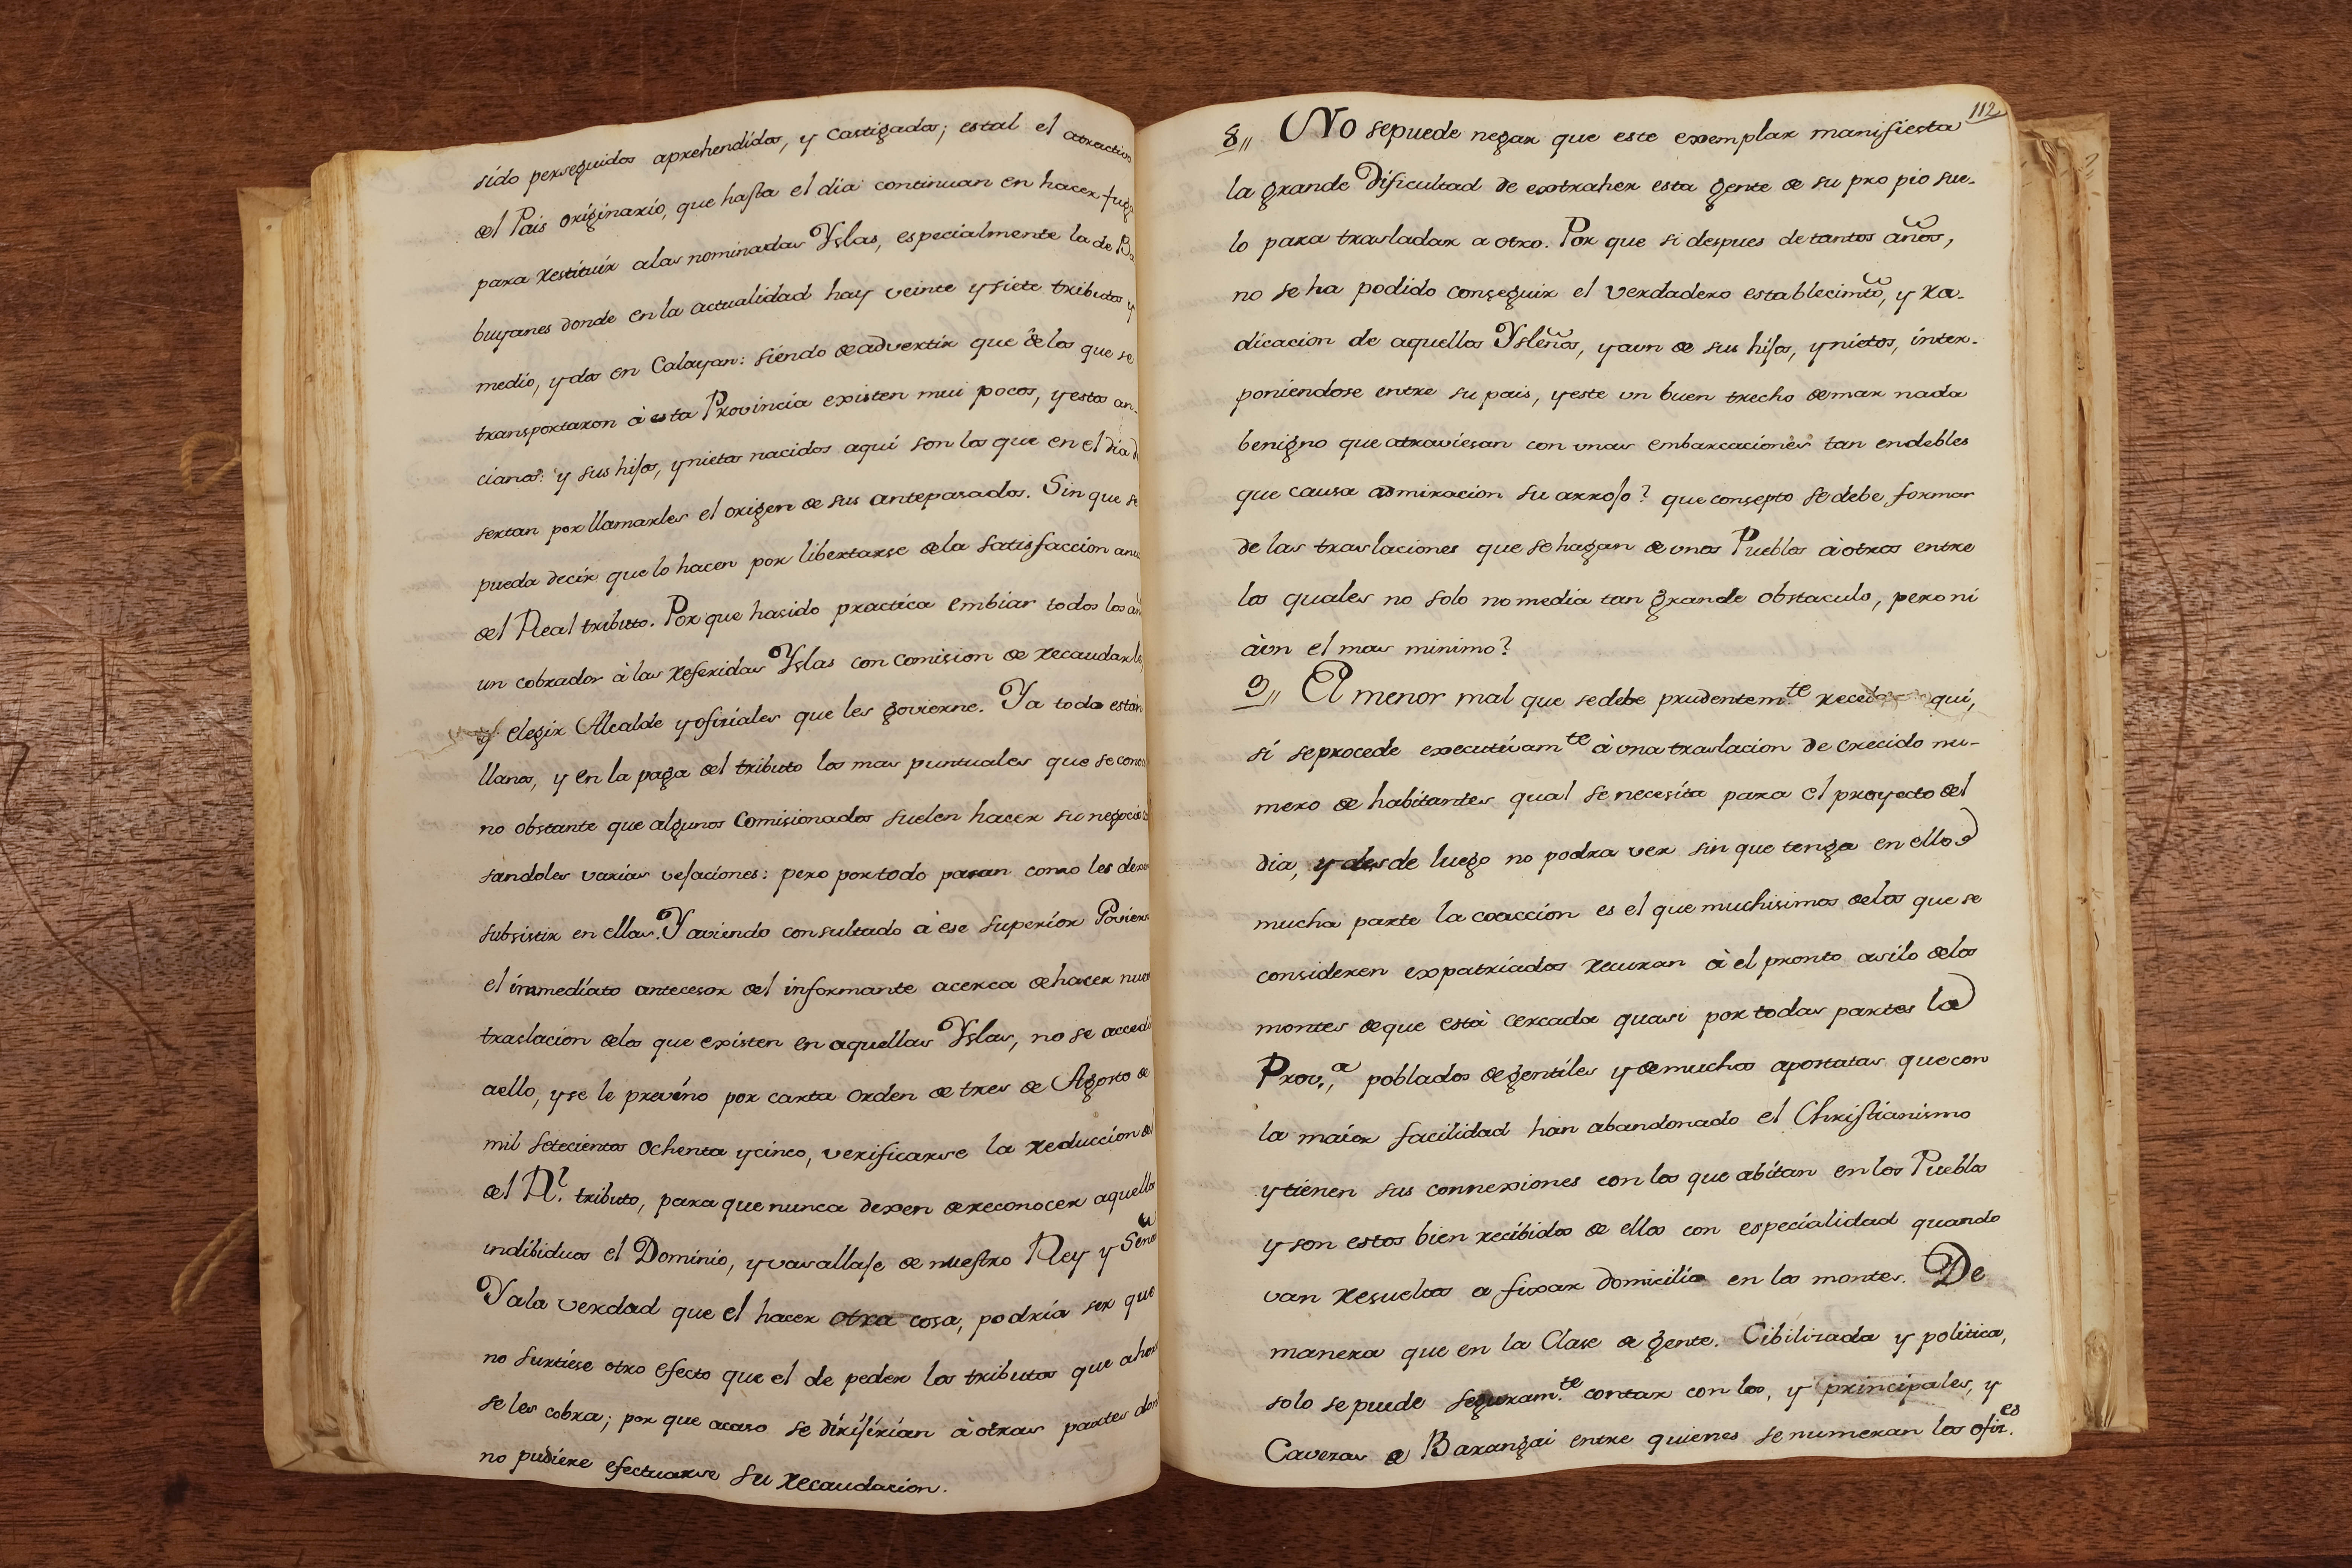 sido perseguidos aprehendidos, y Castigados; estal el atractivo
del Pais originario, que hasta el dia continuan en hacer fuga
para restituir alas nominadas Yslas, especialmente la de Ba
buyanes donde en la actualidad hay veinte y siete tributos y
medio, y dos en Calayan: siendo de advertir que delos que se
transportaron à esta Provincia existen mui pocos, y estos an-
cianos: y sus hijos, y nietos nacidos aquí son los que en el dia d
sertan por llamarles el origen de sus antepasados. Sin que se
pueda decir que lo hacen por libertarse dela satisfaccion anu
del Real tributo. Por que hasido practica embiar todos los añ
un cobrador à las referidas Yslas con comision de recaudarlo
y elegir Alcalde y oficiales que les govierne. Ya todo están
llanos, y en la paga del tributo los mas puntuales que se cono
no obstante que algunos Comisionados suelen hacer su negocio
sandoles varias vejaciones: pero por todo pasan como les dexen
subsistir en ellas. Y aviendo consultado à ese Superior Goviern
el inmediato antecesor del informante acerca de hacer nueva
traslacion delos que existen en aquellas Yslas, no se accedi
aello, y se le previno por carta orden de tres de Agosto de
mil setecientos ochenta y cinco, verificarse la reduccion de
del Rl. tributo, para que nunca dexen de reconocer aquellos
indibiduos el Dominio, y vasallaje de nuestro Rey y Señor
Yala verdad que el hacer otra cosa, podria ser que
no surtiese otro efecto que el de peder los tributos que ahora
se les cobra; por que acaso se dirijirian à otras partes dond
no pudiere efectuarse su recaudacion.
112
8,, No sepuede negar que este exemplar manifiesta
la grande Dificultad de extraher esta gente de su pro pio sue-
lo para trasladar a otro. Por que si despues de tantos años,
no se ha podido conseguir el verdadero establecimto, y ra-
dicacion de aquellos Ysleños, y aun de sus hijos, y nietos, inter-
poniendose entre su pais, y este un buen trecho de mar nada
benigno que atraviesan con unas embarcaciones tan endebles
que causa admiracion su arrojo? que consepto se debe formar
de las traslaciones que se hagan de unos Pueblos à otros entre
los quales no solo no media tan grande obstaculo, pero ni
àun el mas minimo?
9,, El menor mal que se debe prudentem.te aquí,
si se procede executivamte à una traslacion de crecido nu-
mero de habitantes qual se necesita para el proyecto del
dia, y desde luego no podra ver sin que tenga en ello
mucha parte la coaccion es el que muchisimos delos que se
consideren expatriados recurran à el pronto asilo delos
montes de que està cercada quasi por todas partes la
Prov.,a poblados de gentiles y de muchos apostatas que con
la maior facilidad han abandonado el Christianismo
y tienen sus connexiones con los que abitan en los Pueblos
y son estos bien recibidos de ellos con especialidad quando
van resueltos a fixar domicilio en los montes. De
manera que en la Clase de gente. Cibilizada y politica,
solo se puede seguram.te contar con los, y principales, y
Caveras de Barangai entre quienes se numeran los ofiz.es